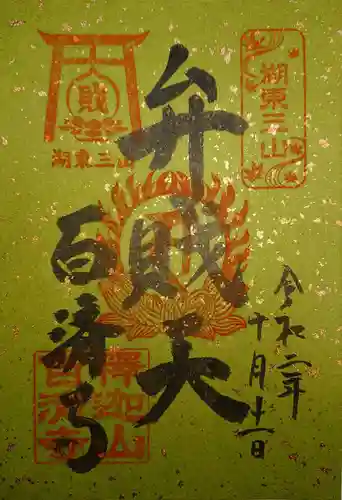 湖東三山
令和二年
十月十一日
弁財天
財
湖東三山
百済寺
釋迦山
百済寺